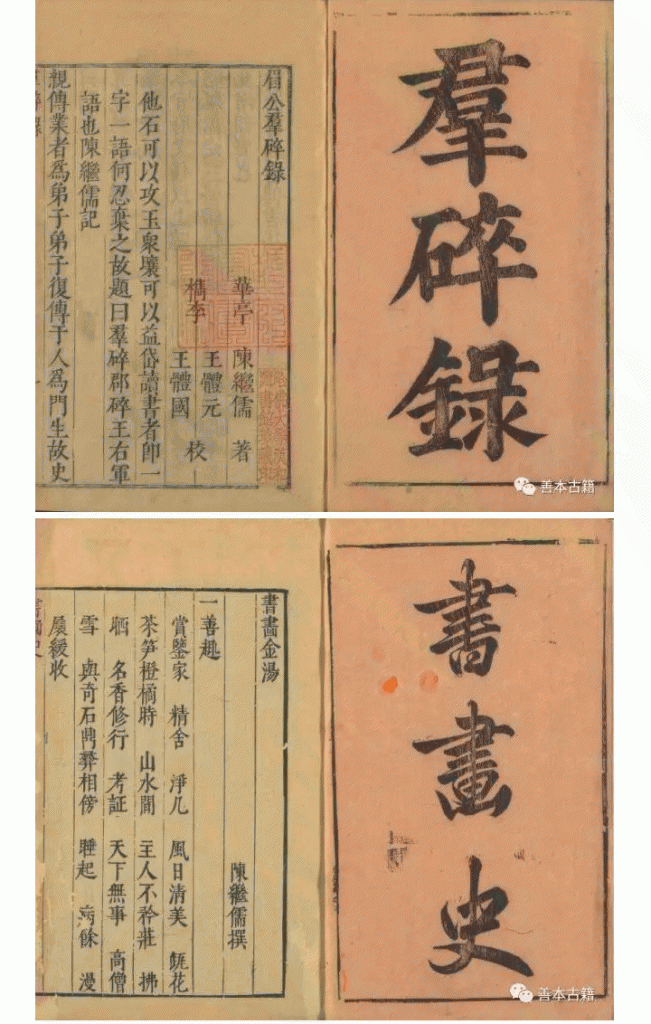 羣碎錄
眉公羣碎錄
華亭 陳繼儒 著
檇李 王體元
王體國 校
他石可以攻玉衆壤可以益岱讀書者卽一
字一語何忍棄之故題曰羣碎郡碎王右軍
語也陳繼儒記
親傳業者爲弟子弟子復傳于人爲門生故史
善本古籍
書畫史
書畫金湯
陳繼儒撰
一善趣
賞鑒家 精舍 淨几 風日清美 甁花
茶笋橙橘時 山水間 主人不矜莊 拂
晒 名香修行 考証 天下無事 高僧
雪 與奇石鼎彝相傍 睡起 病餘 漫
展緩收
善本古籍